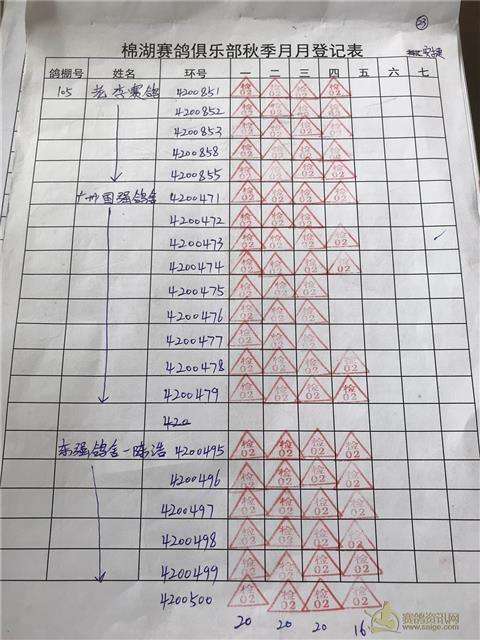 23
棉湖赛鸽俱乐部秋季月月登记表
鸽棚号 姓名 环号 一 二 三 四 五 六 七
105 李赛鸽 4200851 检02 检02 检02 检02
4200852 检02 检02 检02 检02
4200853 检02 检02 检02 检02
4200858 检02 检02 检02 检02
4200855 检02 检02 检02 检02
国强鸽舍 4200471 检02 检02 检02 检02
4200472 检02 检02 检02
4200473 检02 检02 检02 检02
4200474 检02 检02 检02 检02
4200475 检02 检02 检02
4200476 检02 检02 检02
4200477 检02 检02 检02
4200478 检02 检02 检02 检02
4200479 检02 检02 检02 检02
420
东强鸽舍-陈浩 4200495 检02 检02 检02 检02
4200496 检02 检02 检02 检02
4200497 检02 检02 检02 检02
4200498 检02 检02 检02 检02
4200499 检02 检02 检02 检02
4200500 检02 检02 检02 检02
20 20 20 16
赛鸽资讯网
www.saige.com